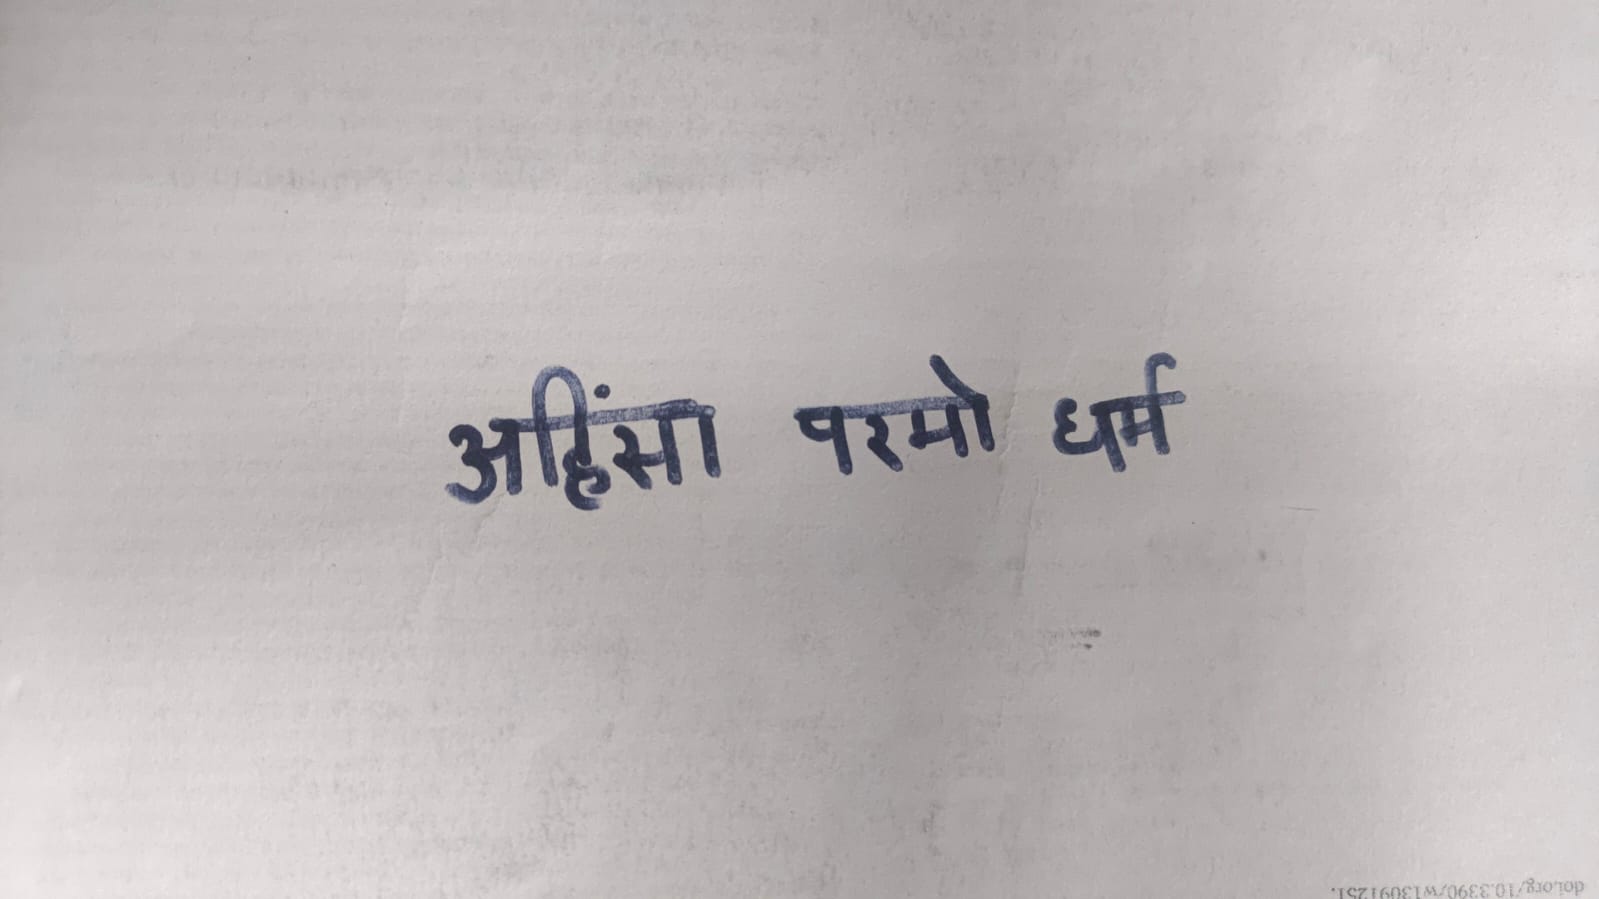 अहिंसा परमो धर्म
doi.org/10.3390/w13091251.